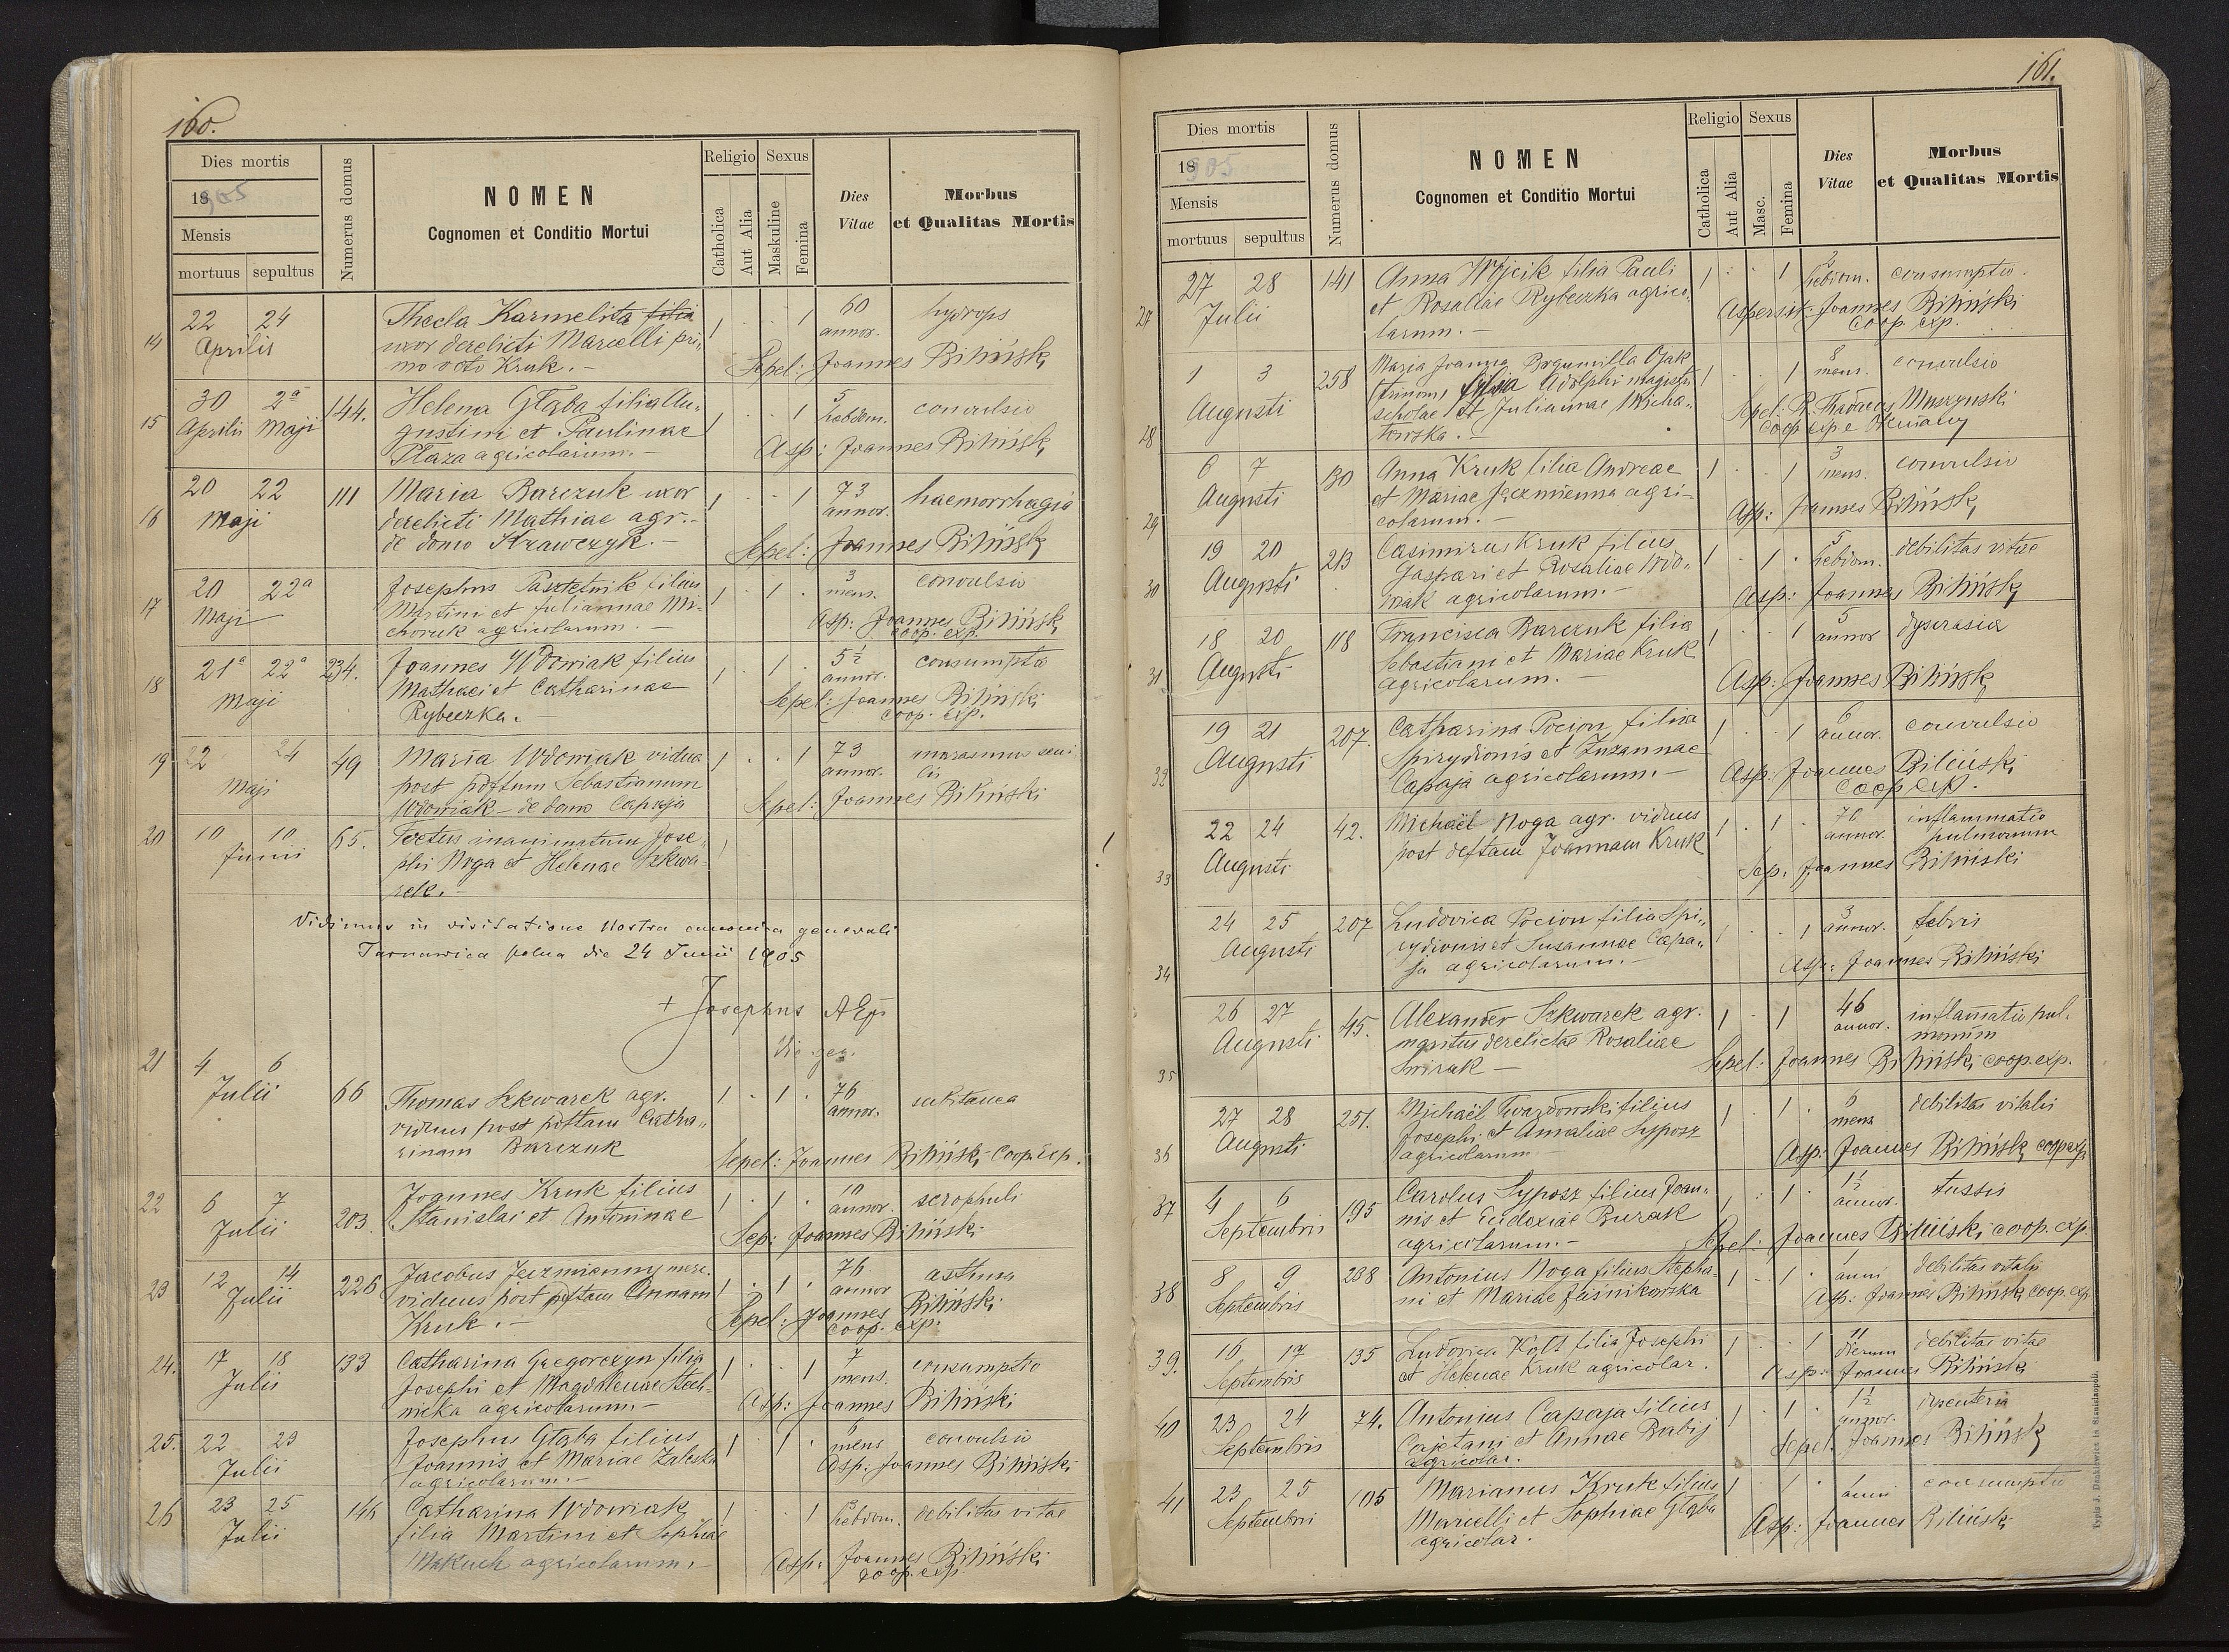 160.
Dies mortis
1905
Mensis
mortuus sepultus
Numerus domus
NOMEN
Cognomen et Conditio Mortui
Religio Sexus
Catholica
Aut Alia
Maskuline
Femina
Dies
Vitae
Morbus
et Qualitas Mortis
14 22 24 Thecla Karmelita filia 1 . . 1 60 hydrops
Aprilis uxor derelicti Marcelli pri- annor.
mo voto Kruk. - Sepel: Joannes Biliński
15 30 2a 144. Helena Głąba filia Au- 1 . . 1 5 convulsio
Aprilis Maji gustini et Paulinae hebdom.
Płaza agricolarum. - Asp: Joannes Biliński
16 20 22 111 Maria Barczuk uxor 1 . . 1 73 haemorrhagia
Maji derelicti Mathiae agr. - annor.
de domo Krawczyk. - Sepel: Joannes Biliński
17 20 22a Josephus Pasztetnik filius 1 . 1 . 3 convulsio
Maji Martini et Juliannae Mi- mens.
choruk agricolarum. - Asp: Joannes Biliński
coop. exp.
18 21a 22a 234. Joannes Wdowiak filius 1 . 1 . 5½ consumptio
Maji Mathaei et Catharinae annor.
Rybeczka. - Sepel: Joannes Biliński
coop. exp.
19 22 24 49 Maria Wdowiak vidua 1 . . 1 73 marasmus seni-
Maji post pdftum Sebastianum annor. lis
Wdowiak - de domo Capaja Sepel: Joannes Biliński
20 10 10 65. Foetus inanimatum Jose- 1
Junii phi Noga et Helenae Szkwa-
rek. -
Vidimus in visitatione Nostra canonica generali
Tarnawica polna die 24 Junii 1905
+ Josephus AEp
Vic. gen.
21 4 6
Julii 66 Thomas Szkwarek agr. 1 . 1 . 76 subitanea
viduus post pdftam Catha- annor.
rinam Barczuk Sepel: Joannes Biliński Coop. exp.
22 6 7 203. Joannes Kruk filius 1 . 1 . 10 scrophuli
Julii Stanislai et Antoninae annor.
Sep: Joannes Biliński
23 12 14 226 Jacobus Jęczmienny merc. 1 . 1 . 76. asthma
Julii viduus post pdftam Annam annor
Kruk. - Sepel: Joannes Biliński
coop. exp.
24. 17 18 133 Catharina Gregorczyn filia 1 . . 1 7 consumptio
Julii Josephi et Magdalenae Stecl- mens.
nicka agricolarum. - Asp: Joannes Biliński
25. 22 23 Josephus Głąba filius 1 . 1 . 6 convulsio
Julii Joannis et Mariae Zaleska mens
agricolarum. - Asp: Joannes Biliński
26 23 25 146 Catharina Wdowiak 1 . 1 hebdom. debilitas vitae
Julii filia Martini et Sophiae
Makuch agricolarum. - Asp: Joannes Biliński
coop. exp.
161.
Dies mortis
1905
Mensis
mortuus sepultus
Numerus domus
NOMEN
Cognomen et Conditio Mortui
Religio Sexus
Catholica
Aut Alia
Masc.
Femina
Dies
Vitae
Morbus
et Qualitas Mortis
27 27 28 141 Anna Wójcik filia Pauli 1 . . 1 2 consumptio.
Julii et Rosaliae Rybeczka agrico- hebdom.
larum. - Aspersit: Joannes Biliński
coop. exp.
28 1 3 258 Maria Joanna Bogumilla Ojak 1 . . 1 8 convulsio
Augusti (trinom) filia Adolphi magistri mens.
scholae et Juliannae Micha- Sepel: R. Thadaeus Muszynski
łowska. - coop exp e
29 6 7 130 Anna Kruk filia Andreae 1 . . 1 3 convulsio
Augusti et Mariae Jęczmienna agri- mens.
colarum. - Asp: Joannes Biliński
30 19 20 213 Casimirus Kruk filius 1 . 1 . 5 debilitas vitae
Augusti Gaspari et Rosaliae Wdo- hebdom.
wiak agricolarum. - Asp: Joannes Biliński
31 18 20 118 Francisca Barczuk filia 1 . . 1 5 dyscrasia
Augusti Sebastiani et Mariae Kruk annor
agricolarum. - Asp: Joannes Biliński
32 19 21 207. Catharina Pocion filia 1 . . 1 6 convulsio
Augusti Spirydionis et Zuzannae annor.
Capaja agricolarum. - Asp: Joannes Biliński
coop exp.
33 22 24 42. Michaël Noga agr. viduus 1 . 1 . 70 inflammatio
Augusti post deftam Joannam Kruk annor. pulmonum
Sep: Joannes Biliński
34 24 25 207 Ludovica Pocion filia Spi- 1 . . 1 3 febris
Augusti rydionis et Susannae Capa- annor.
ja agricolarum. - Asp: Joannes Biliński
35 26 27 45. Alexander Szkwarek agr. 1 . 1 46 inflamatio pul-
Augusti maritus derelictae Rosaliae annor. monum
Świrak - Sepel: Joannes Biliński coop. exp.
36 27 28 251. Michaël Twardowski filius 1 . 1 . 6 debilitas vitalis
Augusti Josephi et Amaliae Syposz mens
agricolarum Asp: Joannes Biliński coop exp
37 4 6 195 Carolus Syposz filius Joan- 1 . 1 . 1½ tussis
Septembris nis et Eudoxiae Burak annor.
agricolarum. - Sepel: Joannes Biliński coop. exp.
38 8 9 238 Antonius Noga filius Stepha- 1 . 1 . 1 anni debilitas vitalis
Septembris ni et Mariae Jaśnikowska Asp: Joannes Biliński coop. exp.
39. 16 17 135 Ludovica Kolt filia Josephi 1 . . 1 11 debilitas vitae
Septembris et Helenae Kruk agricolar. dierum Asp: Joannes Biliński
40 23 24 74. Antonius Capaja filius 1 . 1 . 1½ dysenteria
Septembris Cajetani et Annae Babij annor.
agricolar. Sepel: Joannes Biliński
41 23 25 105 Marianus Kruk filius 1 . 1 . 1 anni consumptio
Septembri Marcelli et Sophiae Głąba
agricolar. Asp: Joannes Biliński
Typis J. Dankiewicz in Stanislaopoli.